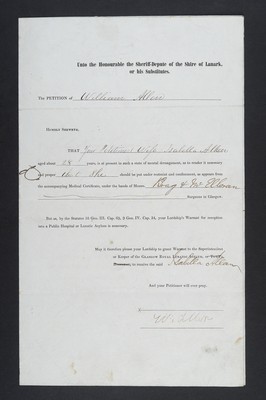 Unto the Honourable the Sheriff-Depute of the Shire of Lanark,
or his Substitutes.
The PETITION of William Allan
HUMBLY SHEWETH,
THAT Your Petitioner's Wife Isabella Allan
aged about 28 years, is at present in such a state of mental derangement, as to render it necessary
and proper that She should be put under restraint and confinement, as appears from
the accompanying Medical Certificate, under the hands of Messrs
Surgeons in Glasgow.
But as, by the Statutes 55 Geo. III. Cap. 69, 9 Geo. IV. Cap. 34, your Lordship's Warrant for reception
into a Public Hospital or Lunatic Asylum is necessary,
May it therefore please your Lordship to grant Warrant to the Superintendent
or Keeper of the GLASGOW ROYAL LUNATIC ASYLUM, or
to receive the said Isabella Allan
And your Petitioner will ever pray.
Wm Allan